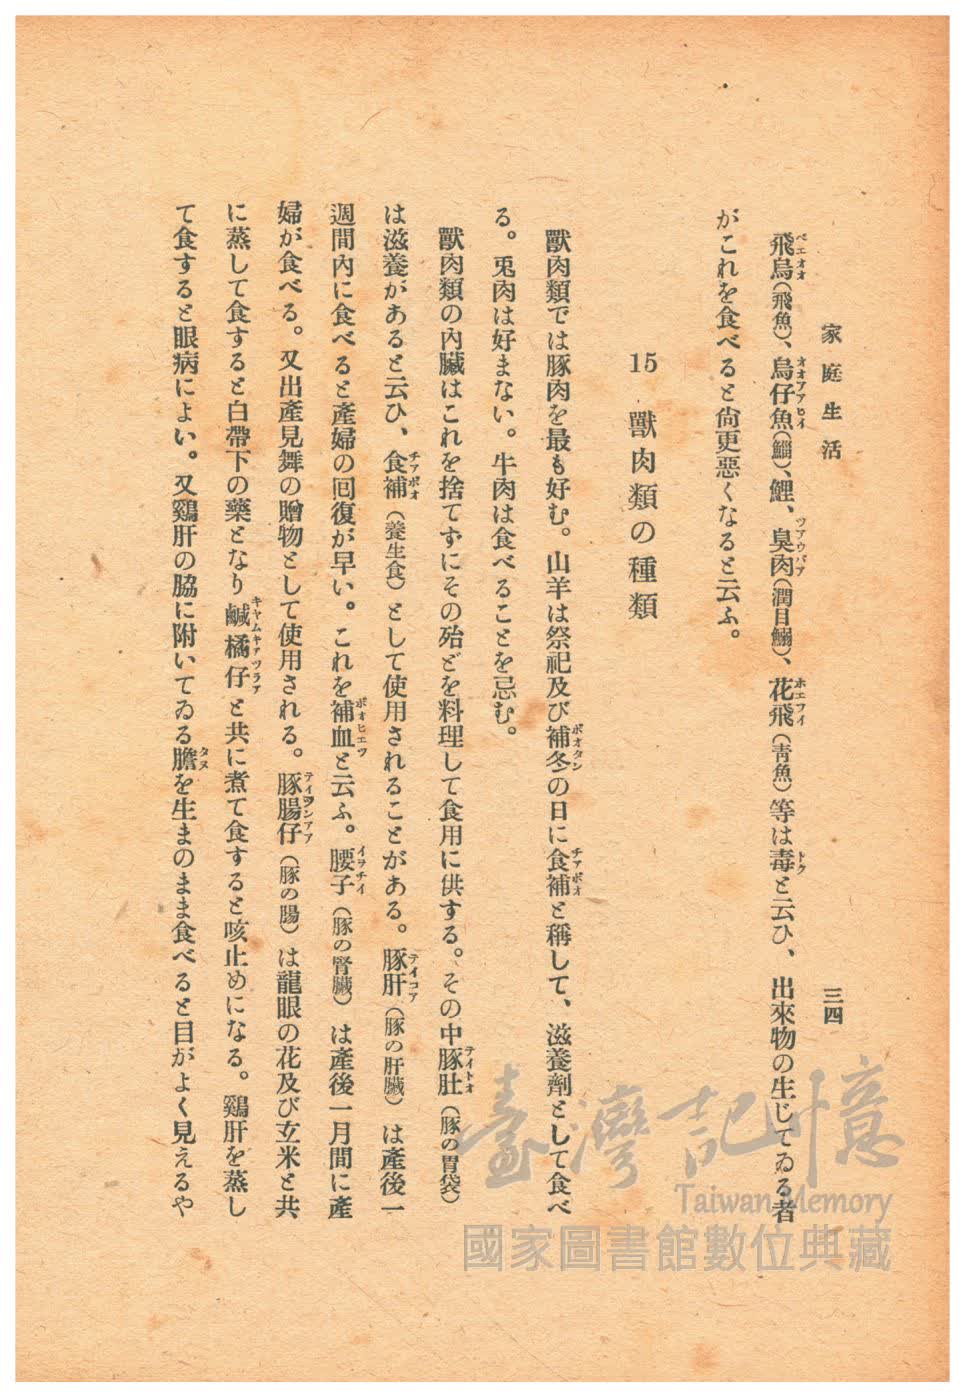 家庭生活
三四
飛烏(飛魚)、烏仔魚(鯔)、鯉、臭肉(潤目鰯)、花飛(靑魚)等は毒と云ひ、出來物の生じてゐる者
がこれを食べると尙更惡くなると云ふ。
15 獸肉類の種類
獸肉類では豚肉を最も好む。山羊は祭祀及び補冬の日に食補と稱して、滋養劑として食べ
る。兎肉は好まない。牛肉は食べることを忌む。
獸肉類の內臟はこれを捨てずにその殆どを料理して食用に供する。その中豚肚(豚の胃袋)
は滋養があると云ひ、食補(養生食)として使用されることがある。豚肝(豚の肝臟)は產後一
週間內に食べると產婦の囘復が早い。これを補血と云ふ。腰子(豚の腎臟)は產後一月間に產
婦が食べる。又出產見舞の贈物として使用される。豚腸仔(豚の腸)は龍眼の花及び玄米と共
に蒸して食すると白帶下の藥となり鹹橘仔と共に煮て食すると咳止めになる。鷄肝を蒸し
て食すると眼病によい。又鷄肝の脇に附いてゐる膽を生まのまま食べると目がよく見えるや
臺灣記憶
Taiwan Memory
國家圖書館數位典藏